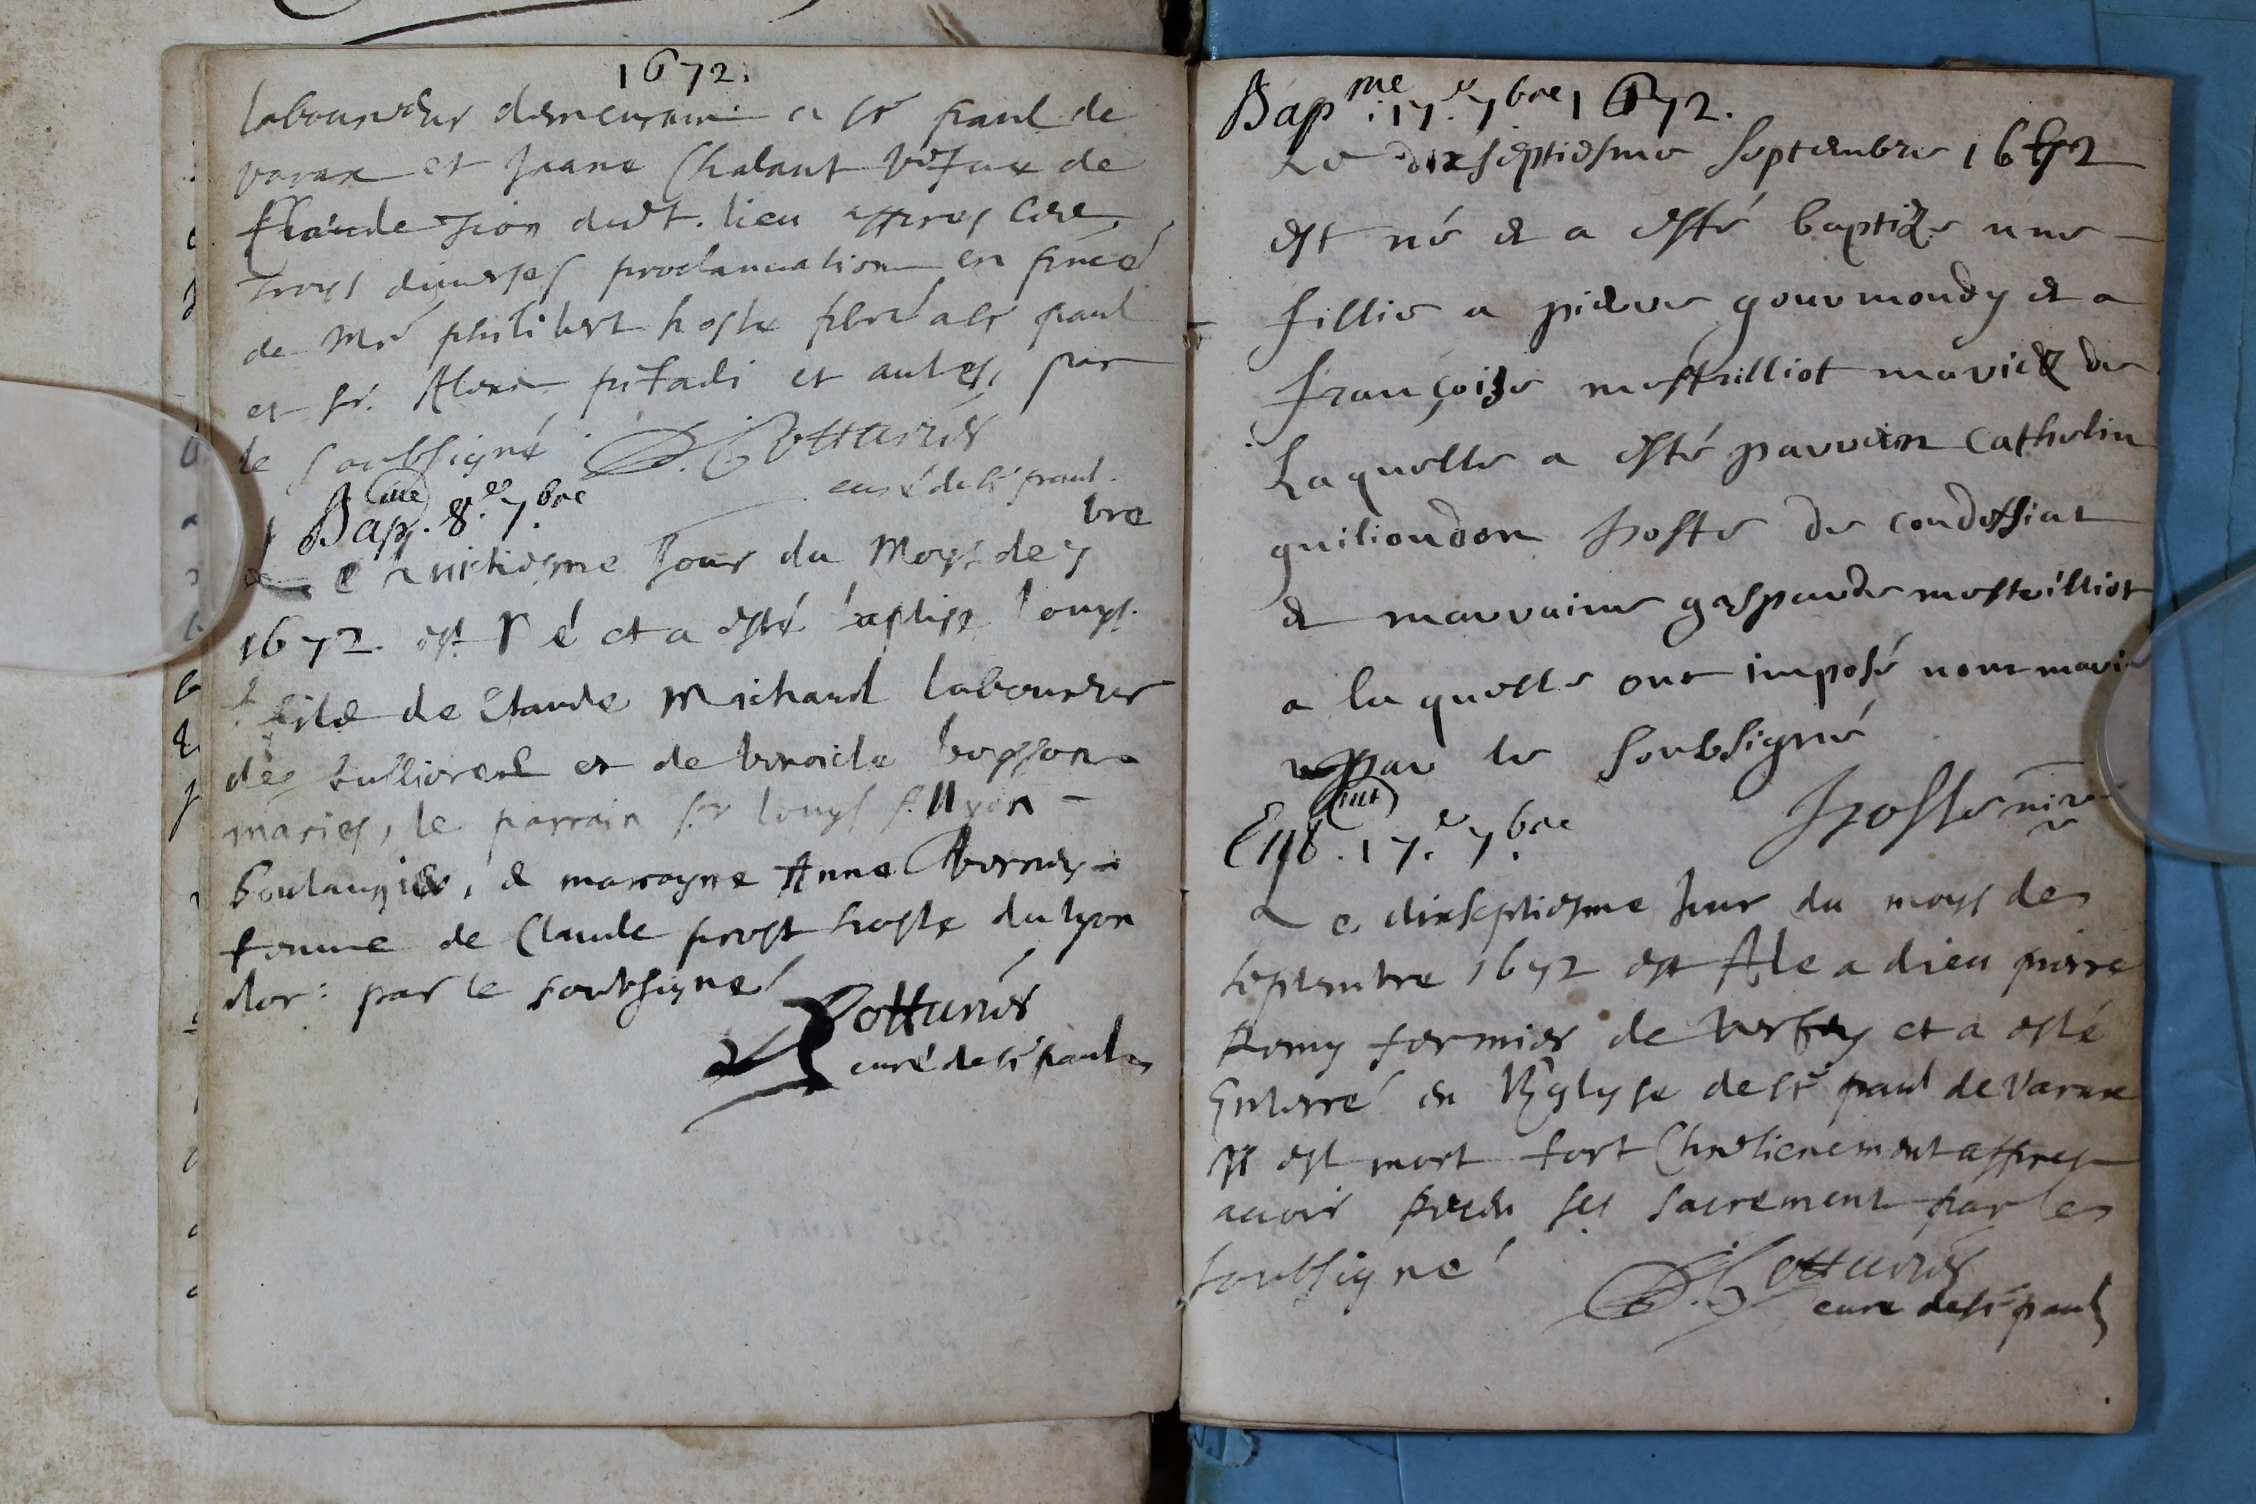 1672.
laboureur demeurant a st paul de
varax et Jeane Chalant vefue de
Claude Jion dudt. lieu appres
troys diuerses proclamation en pnce
de Mre philibert hoste pbre a st paul
et sr. et autres, par
le soubsigné. Cotturier
curé de st paul.
Bapme. 8.e 7.bre
Le huictiesme Jour du Moys de 7bre
1672. est Né et a esté baptise louys.
filz de Claude Michaud laboureur
des et de benoicte boysson
maries, le parrain sr louys
boulangier, & marrayne Anne
femme de Claude prost hoste du lyon
dor: par le soubsigné
Cotturier
curé de st paul
Bapme. 17.e 7bre 1672.
Le dixseptiesme septembre 1672
est né & a esté baptizé une
fillie a pierre gourmondy & a
françoise mestrilliot mariez de
Laquelle a esté parrein Catholin
guiliondon hoste de condessiat
& marraine gaspande mestrilliot
a laquelle ont imposé nom marie
par le soubsigné
Hoste vire
Ent. 17.e 7.bre
Le dixseptiesme Jour du moys de
septembre 1672 est Ale a dieu pierre
Romy fermier de et a esté
Enterré en l'Eglyse de st paul de Varax
Il est mort fort Chretienement appres
auoir Receu ses sacrement par le
soubsigné
Cotturier
cure de st paul